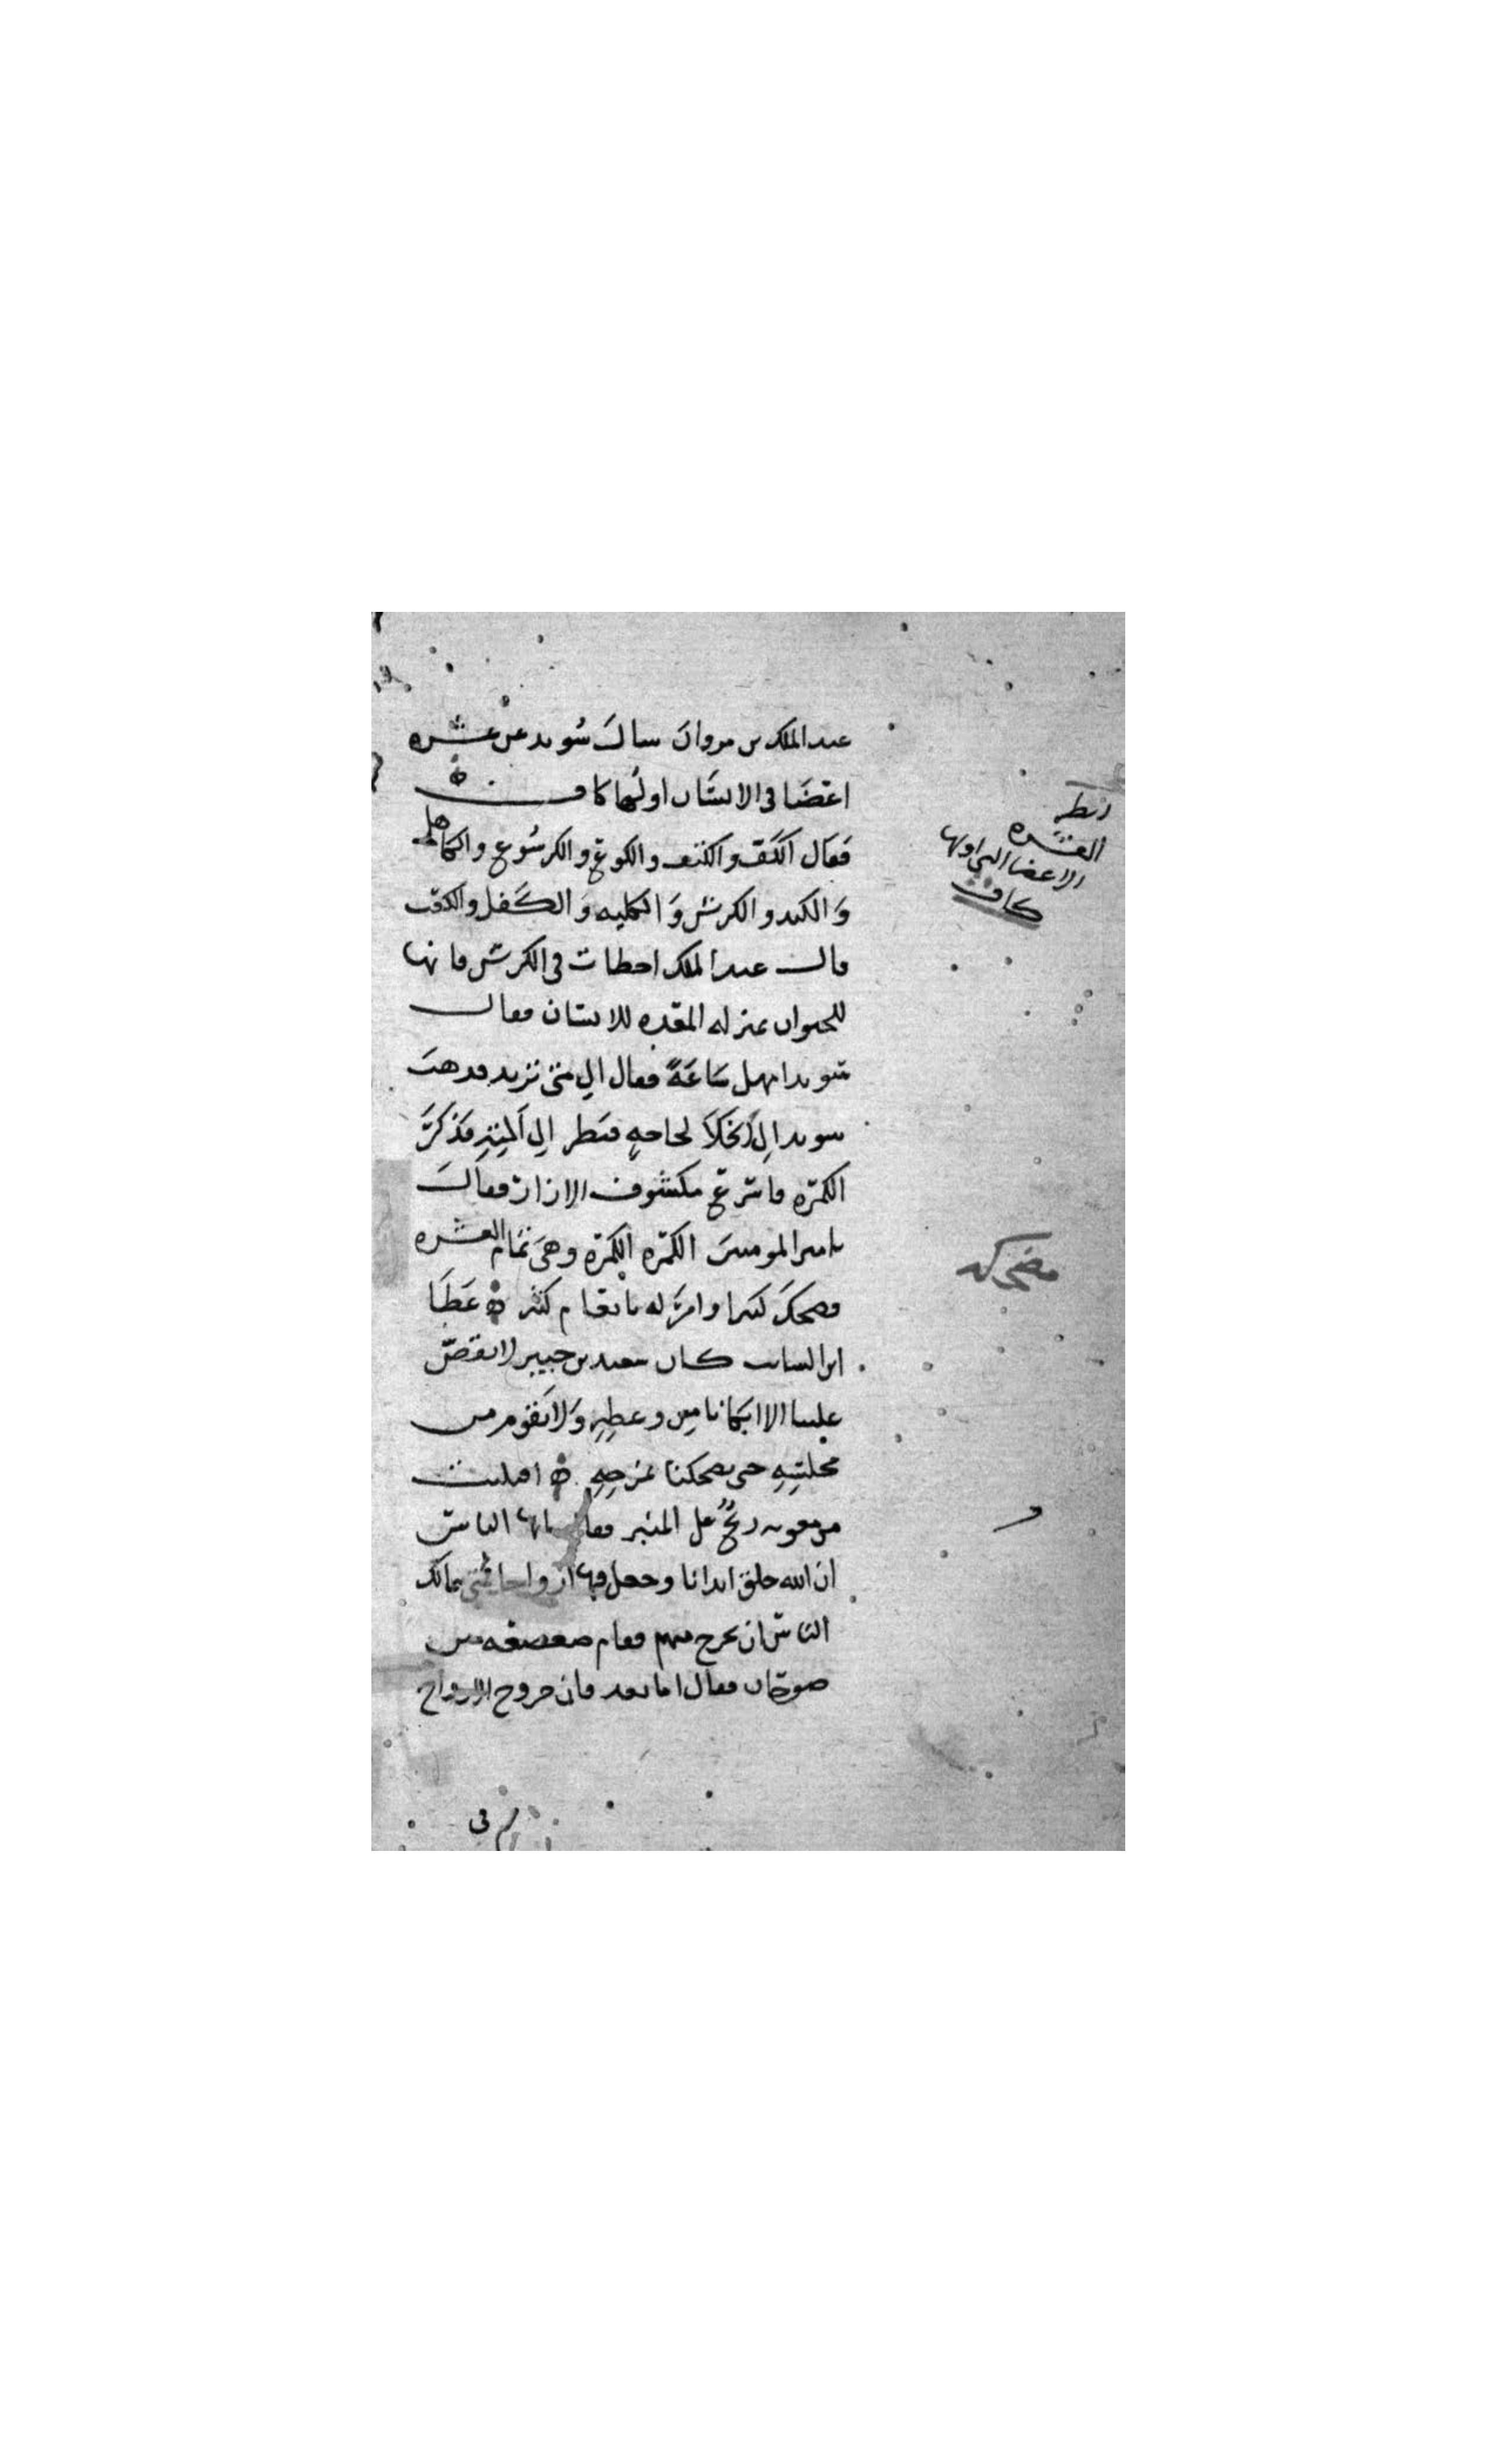 عبد الملك بن مروان سال سُويد عن عشره
اعضا في الانسان اولها كاف
فقال الكف والكتف والكوع والكرسُوع والكاهل
وَالكبد والكرش وَالكليه وَالكَفل والكعب
قال عبد الملك اخطات في الكرش فانها
للحيوان بمنزله المعده للانسان فقال
سويد امهل سَاعَةً فقال الي متى تريد فذهبَ
سويد اِلى الخَلاَ لحاجهٍ فنظر اِلى اَلمتنرِ فَذَكَرَ
الكمَره فاسرع مكشوف الازار فقالَ
يامير المومنين الكمَره الكمَره وهيَ تمام العشره
فضحكَ كثيرا وامَر له بانعام كثير ه عَطَا
ابن السايب كان سعيد بن جبير لا يقصّ
علينا الا ابكانا مِن وعظِهِ وَلا يَقوم من
مجلسِهِ حتى يضحكنا بمزحِهِ ه افلتت
من معويه ريحٌ على المنبر فقال يايها الناس
ان الله خلق ابدانا وجعل فيها ارواحا فمتى تمالك
الناس ان يخرج منهم فقام صعصعه بن
صوحان فقال اما بعد فان خروج الارواح
في
العشره
الاعضا التي اولها
كاف
مضحكه